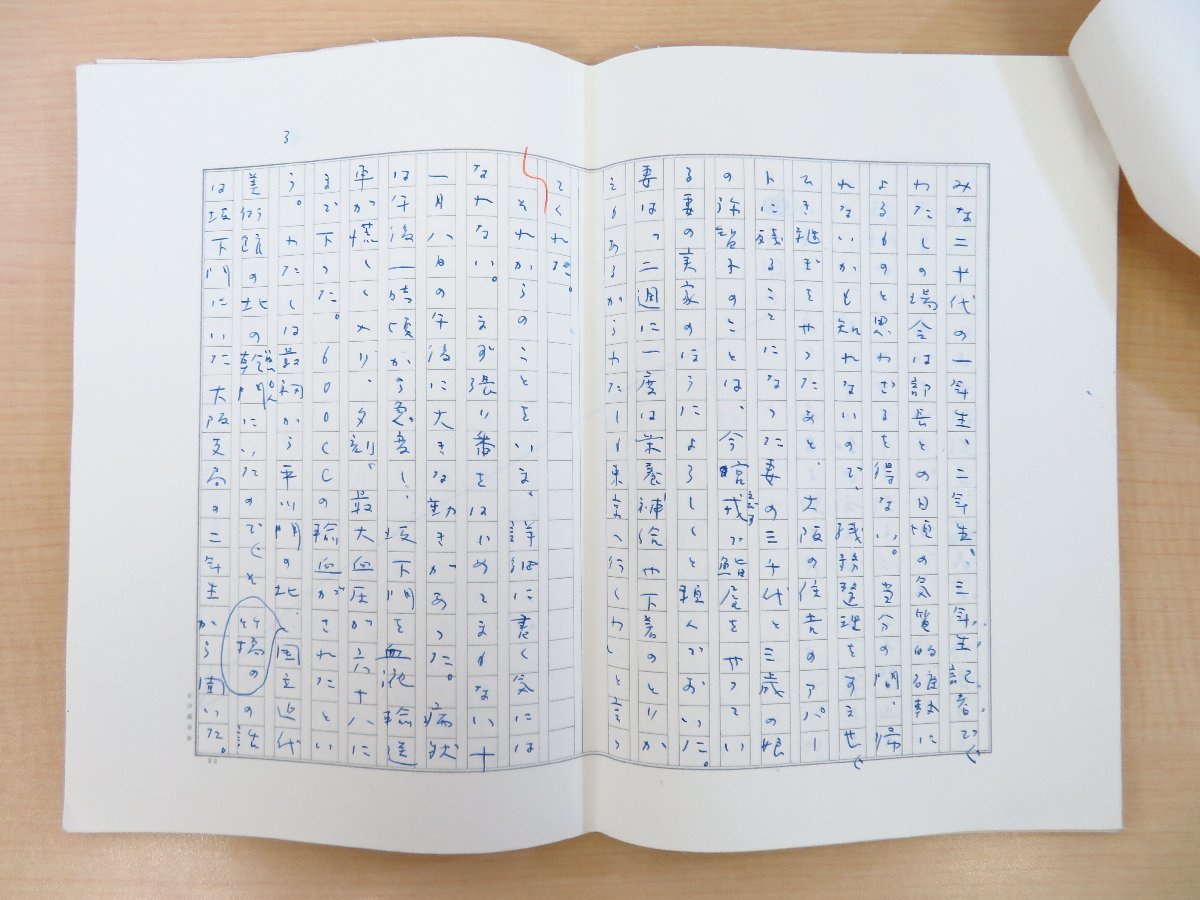 3
みな二十代の一年生、二年生、三年生記者で、
わたしの場合は部長との日頃の気質的確執に
よるものと思わざるを得ない。当分の間、帰
れないかも知れないので、残務整理をすませ
ひき継ぎをやったあと、大阪の住吉のアパー
トに残ることになった妻の三千代と三歳の娘
の弥智子のことは、今宿戎で鮨屋をやってい
る妻の実家のほうによろしくと頼んでおいた。
妻は、二週に一度は栄養補給や下着のとりか
えがあるからわたしも東京へ行くわ、と言っ
てくれた。
それからのことをいま、詳細に書く気には
なれない。まず張り番をはじめてまもない十
一月八日の午後に大きな動きがあった。病状
は午後一時頃から急変し、坂下門を血液輸送
車が慌しく入り、夕刻、最大血圧が六十八に
まで下った。600CCの輸血がされたとい
う。わたしは最初から平川門の北、国立近代
美術館の北の乾門にいたので、その話
は坂下門にいた大阪支局の二年生から聞いた。
竹橋の